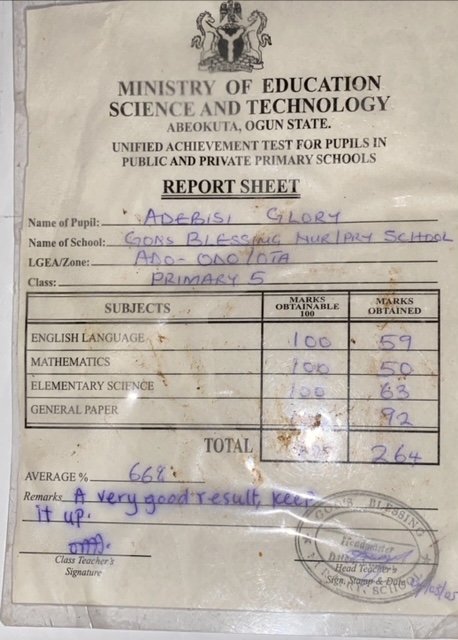 MINISTRY OF EDUCATION
SCIENCE AND TECHNOLOGY
ABEOKUTA, OGUN STATE.
UNIFIED ACHIEVEMENT TEST FOR PUPILS IN
PUBLIC AND PRIVATE PRIMARY SCHOOLS
REPORT SHEET
Name of Pupil: ADEBISI GLORY
Name of School: GONS BLESSING NUR/PRY SCHOOL
LGEA/Zone: ADO-ODO/OTA
Class: PRIMARY 5
SUBJECTS MARKS OBTAINABLE 100 MARKS OBTAINED
ENGLISH LANGUAGE 100 59
MATHEMATICS 100 50
ELEMENTARY SCIENCE 100 63
GENERAL PAPER 92
TOTAL 264
AVERAGE % 66%
Remarks A very good result, keep
it up.
GON'S BLESSING
Headmaster
Class Teacher's
Signature
Head Teacher's
Sign, Stamp & Date